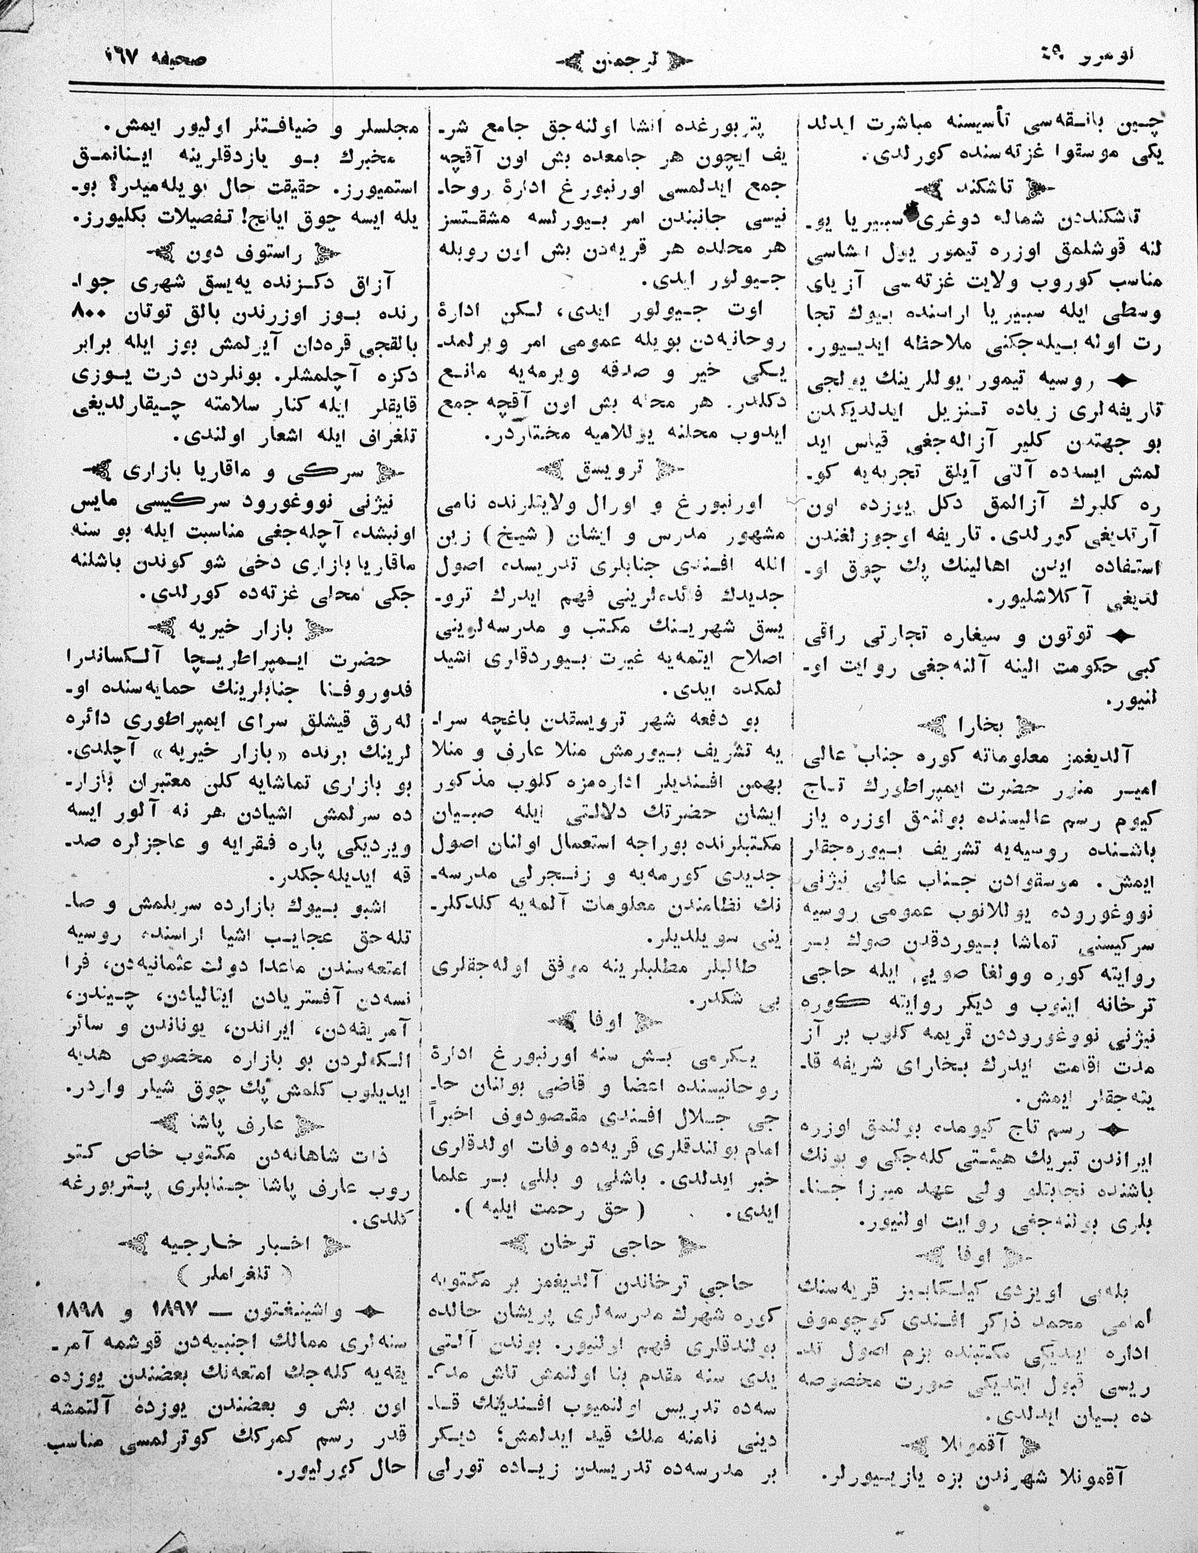 نومرو ٤٩
ترجمان
صحيفه ١٦٧
چين بانقه‌سى تأسيسنه مباشرت ايدلد
يكى موسقوا غزته‌سنده كورلدى.
تاشكند
تاشكنددن شماله دوغرى سبيريا يو-
لنه قوشلمق اوزره تيمور يول انشاسى
مناسب كوروب ولايت غزته‌سى آزياى
وسطى ايله سبيريا اراسنده بيوك تجا
رت اوله بيله‌جكنى ملاحظه ايدييور.
روسيه تيمور يوللرينك يولجى
تاريفه‌لرى زياده تنزيل ايدلديكدن
بو جهتدن كلير آزاله‌جغى قياس ايد
لمش ايسه‌ده آلتى آيلق تجربه‌يه كو-
ره كليرك آزالمق دكل يوزده اون
آرتديغى كورلدى. تاريفه اوجوزلغندن
استفاده ايدن اهالينك پك چوق او-
لديغى آكلاشليور.
توتون و سيغاره تجارتى راقى
كبى حكومت الينه آلنه‌جغى روايت او-
لنيور.
بخارا
آلديغمز معلوماته كوره جناب عالى
امير منور حضرت ايمپراطورك تاج
كيوم رسم عاليسنده بولنمق اوزره ياز
باشنده روسيه‌يه تشريف بيوره‌جقار
ايمش. موسقوادن جناب عالى نيژنى
نووغوروده يوللانوب عمومى روسيه
سركيسنى تماشا بيوردقدن صوك بر
روايته كوره وولغا صويى ايله حاجى
ترخانه اينوب و ديكر روايته كوره
نيژنى نووغوروددن قريمه كلوب بر آز
مدت اقامت ايدرك بخاراى شريفه قا-
يته‌جقلر ايمش.
رسم تاج كيومده بولنمق اوزره
ايراندن تبريك هيئتى كله‌جكى و بونك
باشنده نجابتلو ولى عهد ميرزا جنا-
بلرى بولنه‌جغى روايت اولنيور.
اوفا
بله‌بى اويزدى قريه‌سنك
امامى محمد ذاكر افندى كوچوموف
اداره ايتديكى مكتبنده بزم اصول تد-
ريسى قبول ايتديكى صورت مخصوصه
ده بيان ايدلدى.
آقمونلا
آقمونلا شهرندن بزه يازييورلر.
پتربورغده انشا اولنه‌جق جامع شر-
يف ايچون هر جامعده بش اون آقچه
جمع ايدلمسى اورنبورغ ادارۀ روحا-
نيسى جانبندن امر بيورلسه مشقتسز
هر محلده هر قريه‌دن بش اون روبله
جيولور ايدى.
اوت جيولور ايدى، لكن ادارۀ
روحانيه‌دن بويله عمومى امر ويرلمد-
يكى خير و صدقه ويرمه‌يه مانع
دكلدر. هر محله بش اون آقچه جمع
ايدوب محلنه يوللاميه مختاردر.
ترويسق
اورنبورغ و اورال ولايتلرنده نامى
مشهور مدرس و ايشان (شيخ) زين
الله افندى جنابلرى تدريسده اصول
جديدك فائده‌لرينى فهم ايدرك ترو-
يسق شهرينك مكتب و مدرسه‌لرينى
اصلاح ايتمه‌يه غيرت بيوردقارى اشيد
لمكده ايدى.
بو دفعه شهر ترويسقدن باغچه سرا-
يه تشريف بيورمش منلا عارف و منلا
بهمن افنديلر اداره‌مزه كلوب مذكور
ايشان حضرتك دلالتى ايله صبيان
مكتبلرنده بوراجه استعمال اولنان اصول
جديدى كورمه‌يه و زنجرلى مدرسه-
نك نظامندن معلومات آلمه‌يه كلدكلر-
ينى سويلديلر.
طالبلر مطلبلرينه موفق اوله‌جقلرى
بى شكدر.
اوفا
يكرمى بش سنه اورنبورغ ادارۀ
روحانيسنده اعضا و قاضى بولنان حا-
جى جلال افندى مقصودوف اخيراً
امام بولندقلرى قريه‌ده وفات اولدقلرى
خبر ايدلدى. باشلى و بللى بر علما
ايدى. (حق رحمت ايليه).
حاجى ترخان
حاجى ترخاندن آلديغمز بر مكتوبه
كوره شهرك مدرسه‌لرى پريشان حالده
بولندقلرى فهم اولنيور. بوندن آلتى
يدى سنه مقدم بنا اولنمش تاش مدر-
سه‌ده تدريس اولنميوب افندينك قا-
دينى نامنه ملك قيد ايدلمش؛ ديكر
بر مدرسه‌ده تدريسدن زياده تورلى
مجلسلر و ضيافتلر اوليور ايمش.
مخبرك بو يازدقلرينه اينانمق
استميورز. حقيقت حال بويله‌ميدر؟ بو-
يله ايسه چوق ايانج! تفصيلات بكليورز.
راستوف دون
آزاق دكزنده يه‌يسق شهرى جوا-
رنده بوز اوزرندن بالق توتان ٨٠٠
بالقجى قره‌دان آيرلمش بوز ايله برابر
دكزه آچلمشلر. بونلردن درت يوزى
قايقلر ايله كنار سلامته چيقارلديغى
تلغراف ايله اشعار اولندى.
سركى و ماقاريا بازارى
نيژنى نووغورود سركيسى مايس
اونبشده آچله‌جغى مناسبت ايله بو سنه
ماقاريا بازارى دخى شو كوندن باشلنه
جكى محلى غزته‌ده كورلدى.
بازار خيريه
حضرت ايمپراطريچا آلكساندرا
فدوروفنا جنابلرينك حمايه‌سنده او-
له‌رق قيشلق سراى ايمپراطورى دائره
لرينك برنده «بازار خيريه» آچلدى.
بو بازارى تماشايه كلن معتبران بازار-
ده سرلمش اشيادن هر نه آلور ايسه
ويرديكى پاره فقرايه و عاجزلره صد-
قه ايديله‌جكدر.
اشبو بيوك بازارده سريلمش و صا-
تله‌جق عجايب اشيا اراسنده روسيه
امتعه‌سندن ماعدا دولت عثمانيه‌دن، فرا
نسه‌دن آفستريادن ايتاليادن، چيندن،
آمريقه‌دن، ايراندن، يوناندن و سائر
الكه‌لردن بو بازاره مخصوص هديه
ايديلوب كلمش پك چوق شيلر واردر.
عارف پاشا
ذات شاهانه‌دن مكتوب خاص كتو
روب عارف پاشا جنابلرى پتربورغه
كلدى.
اخبار خارجيه
(تلغراملر)
واشينغتون — ١٨٩٧ و ١٨٩٨
سنه‌لرى ممالك اجنبيه‌دن قوشمه آمر-
يقه‌يه كله‌جك امتعه‌نك بعضندن يوزده
اون بش و بعضندن يوزدۀ آلتمشه
قدر رسم كمرك كوترلمسى مناسب
حال كورليور.